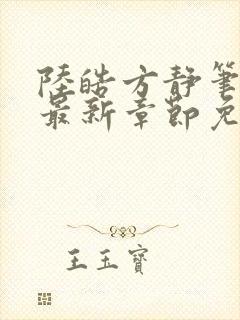 陸皓方靜筆
最新章節免
王玉寶